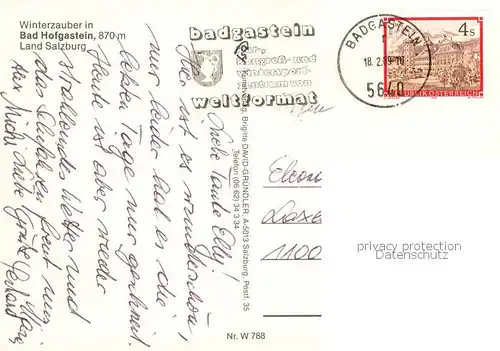 Winterzauber in
Bad Hofgastein, 870 m
Land Salzburg
badgastein
kur-,
kongreß- und
wintersport-
zentrum von
weltformat
BADGASTEIN
18. 2. 89-10
5640
4 S
REPUBLIK ÖSTERREICH
Liebe Tante Elly!
Hier ist es wunderschön,
nur leider hat es die
letzten Tage nur geschneit.
Heute ist aber wieder
strahlendes Wetter und
das Schifahren freut uns
Alles Liebe Grüße
Michi Gerhard
Brigitte DAVID-GRÜNDLER, A-5013 Salzburg, Postf. 35
Telefon (06 62) 34 3 34
1100
privacy protection
Datenschutz
Nr. W 788